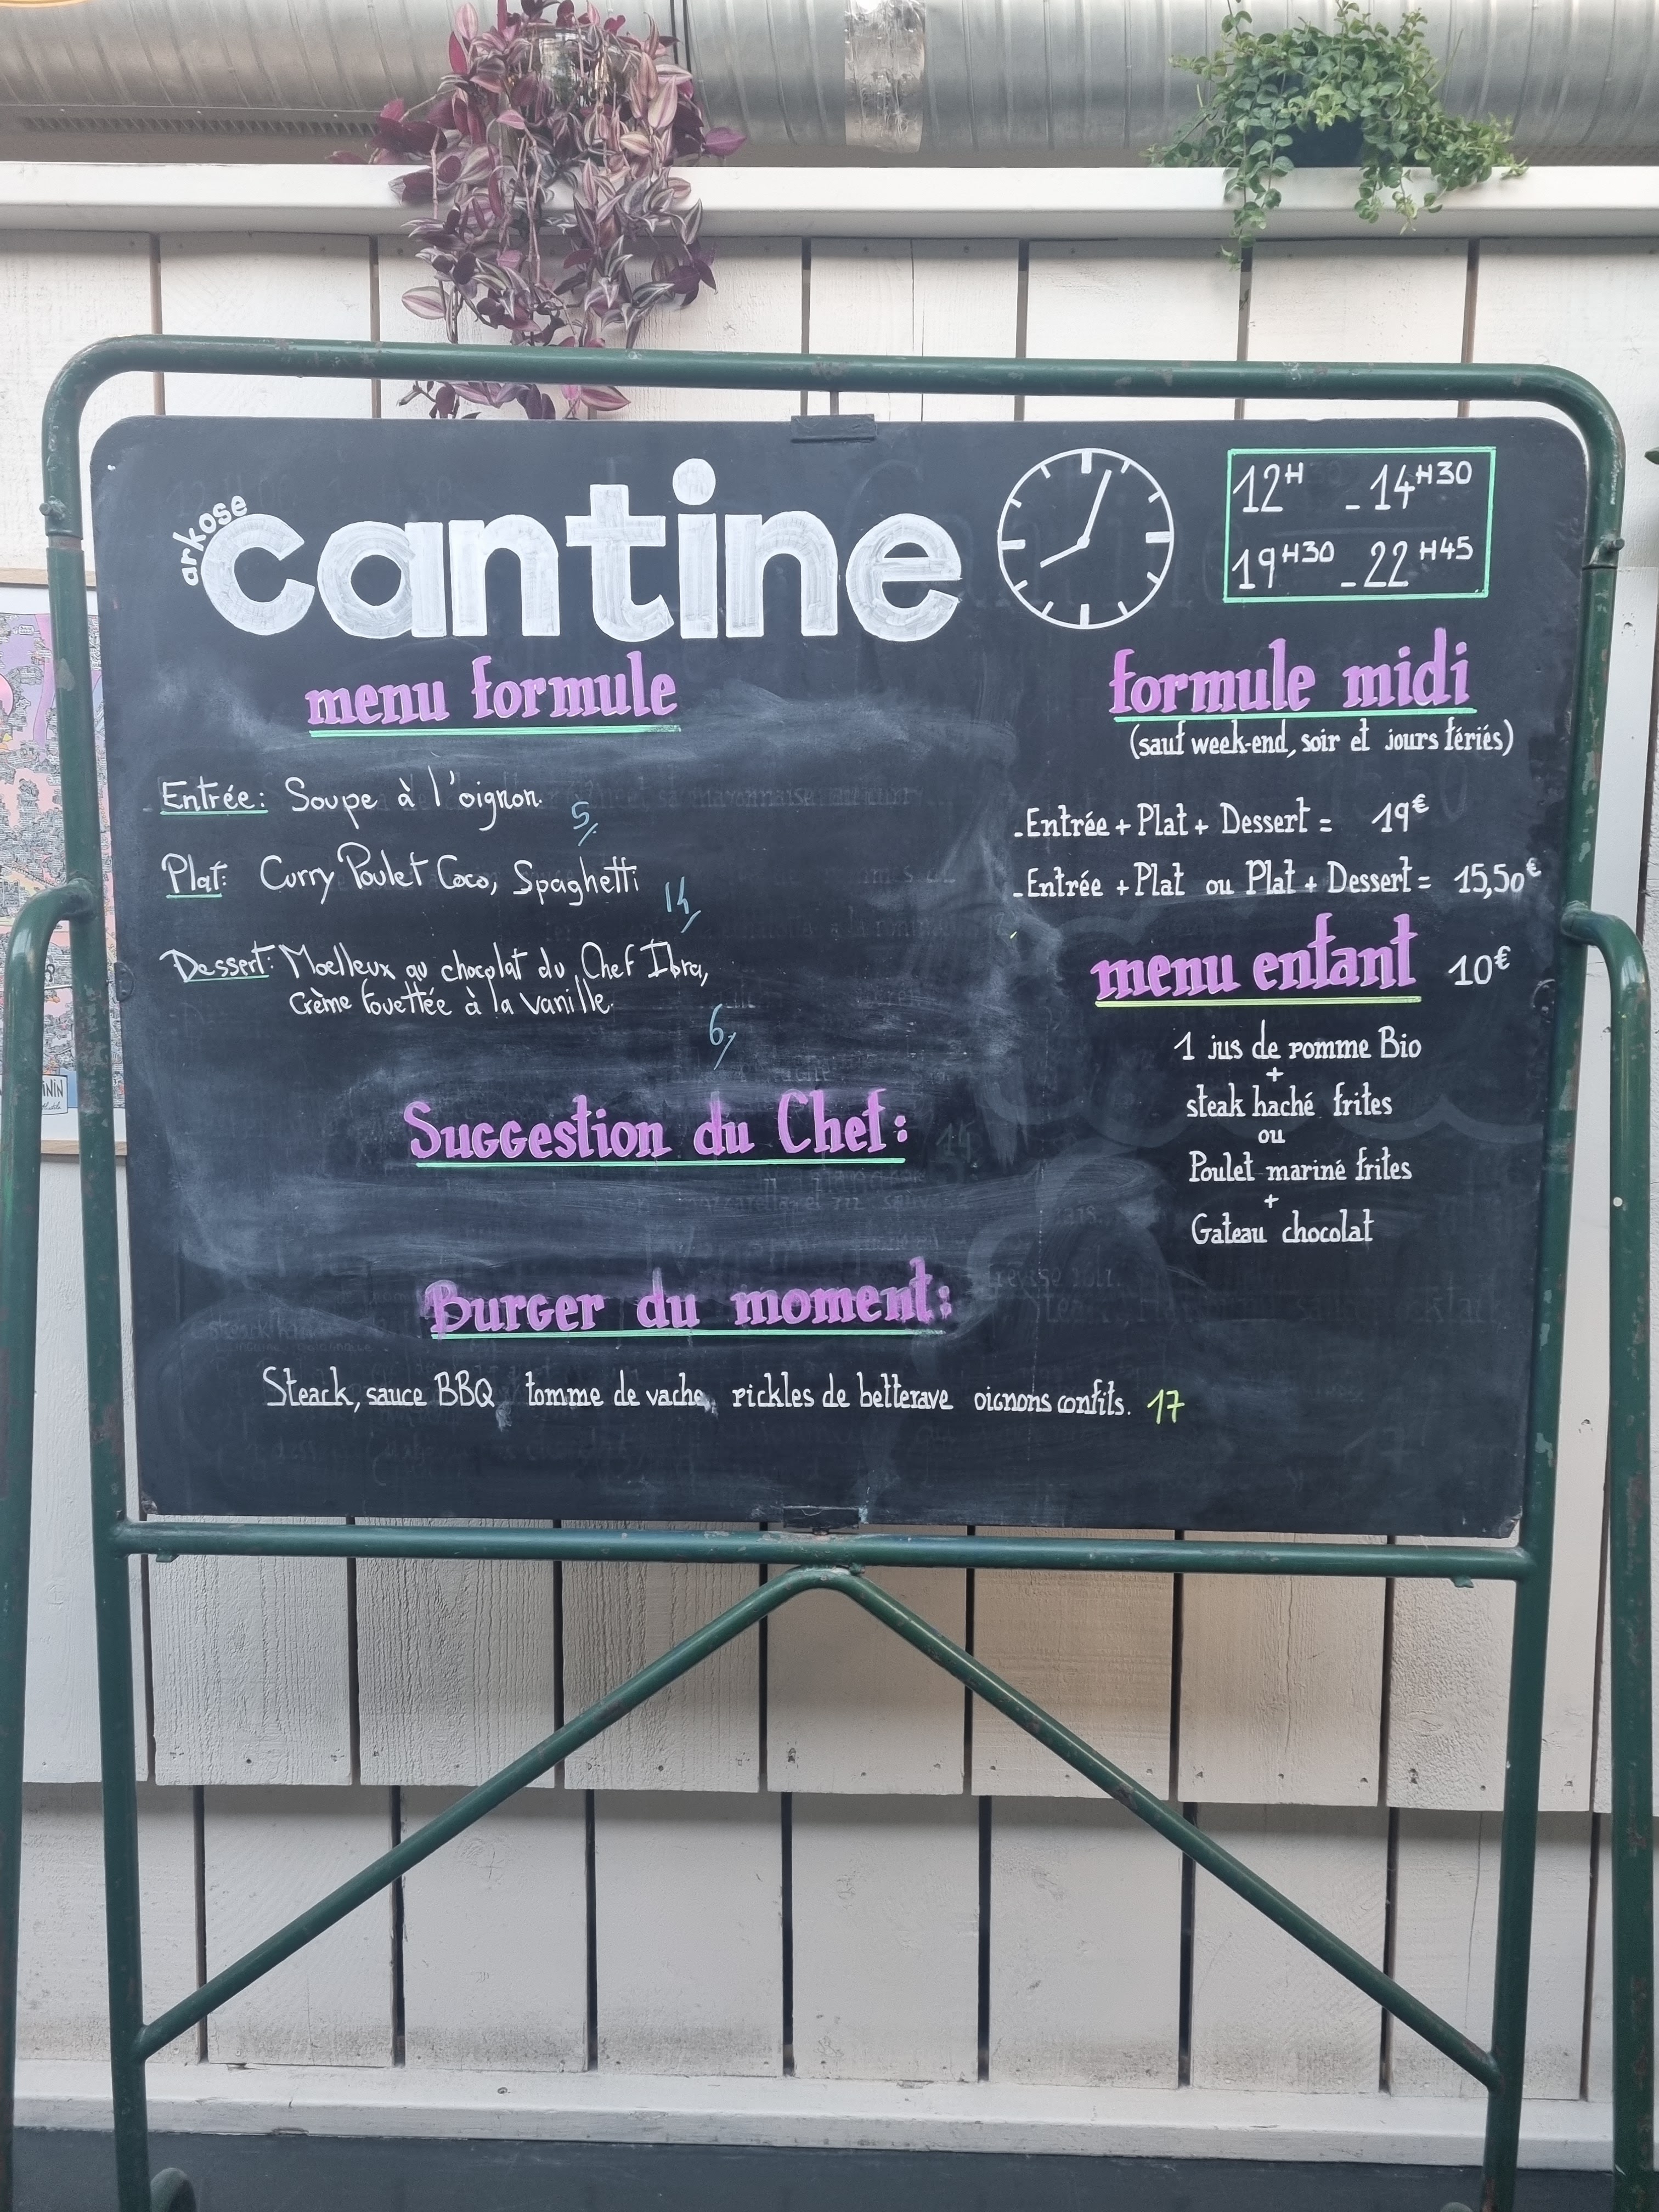 arkose
cantine
12H - 14H30
19H30 - 22H45
menu formule
Entrée: Soupe à l'oignon.
5
Plat: Curry Poulet Coco, Spaghetti
14
Dessert: Moelleux au chocolat du Chef Ibra,
crème fouettée à la vanille.
6
Suggestion du Chef:
Burger du moment:
Steack, sauce BBQ tomme de vache, pickles de betterave oignons confits. 17
formule midi
(sauf week-end, soir et jours fériés)
- Entrée + Plat + Dessert = 19€
- Entrée + Plat ou Plat + Dessert = 15,50€
menu enfant 10€
1 jus de pomme Bio
+
steak haché frites
ou
Poulet mariné frites
+
Gateau chocolat